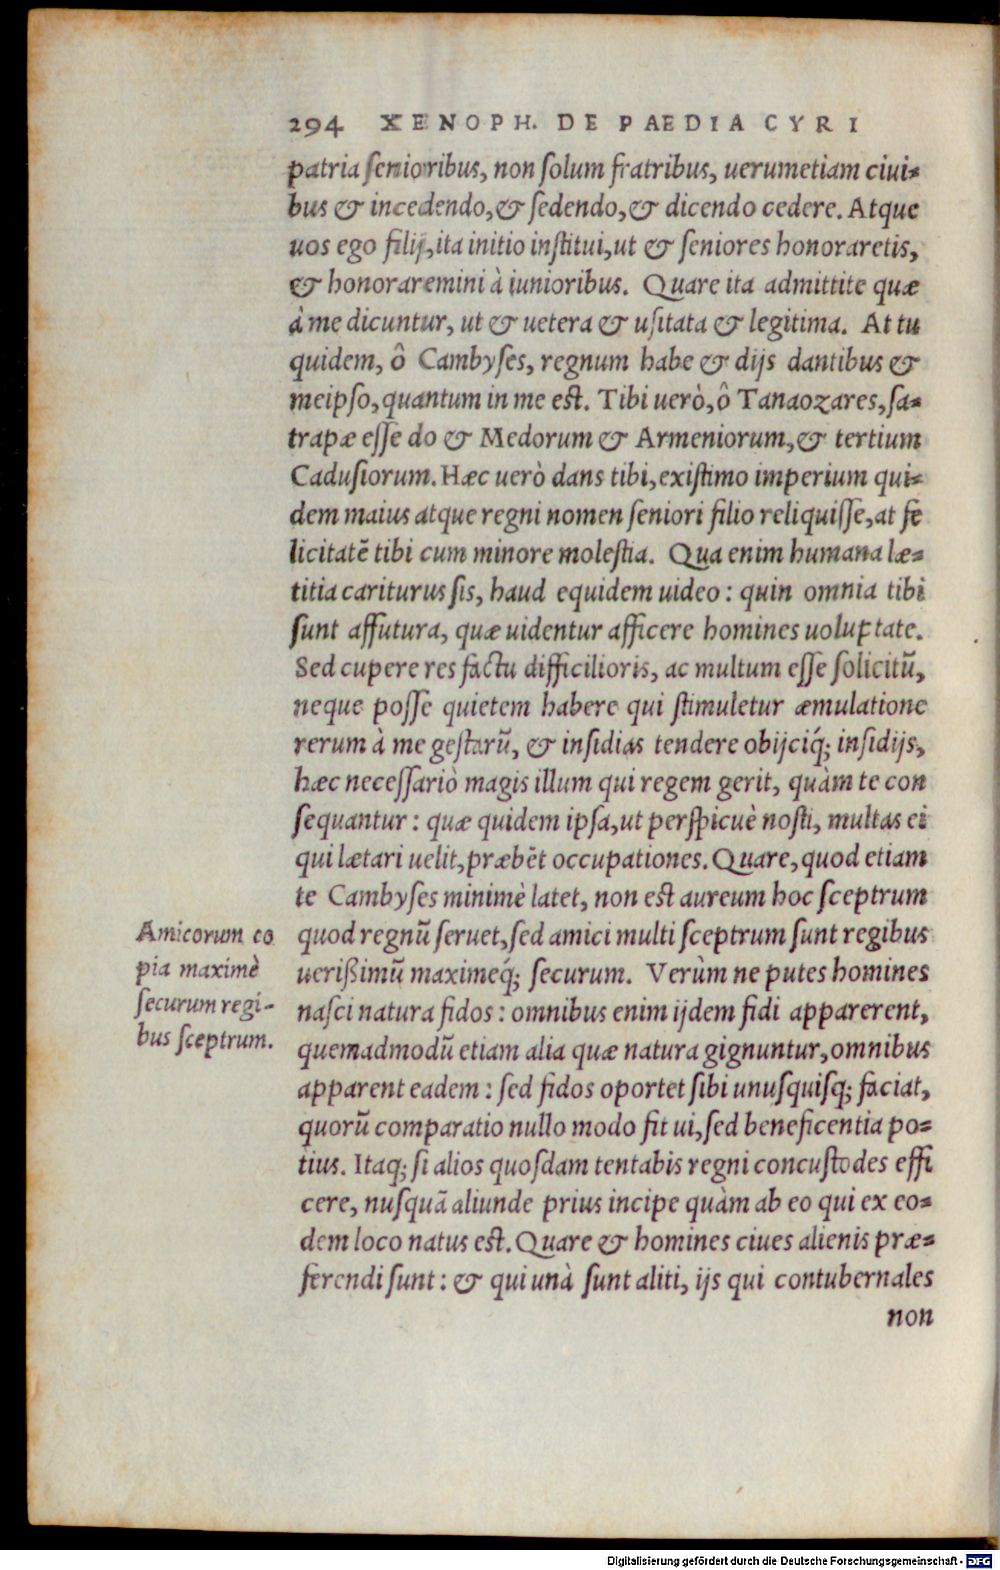 294 XENOPH. DE PAEDIA CYRI
patria ſenioribus, non ſolum fratribus, uerumetiam ciui-
bus & incedendo, & ſedendo, & dicendo cedere. Atque
uos ego filij, ita initio inſtitui, ut & ſeniores honoraretis,
& honoraremini à iunioribus. Quare ita admittite quæ
à me dicuntur, ut & uetera & uſitata & legitima. At tu
quidem, ô Cambyſes, regnum habe & dijs dantibus &
meipſo, quantum in me est. Tibi uerò, ô Tanaozares, ſa-
trapæ eſſe do & Medorum & Armeniorum, & tertium
Caduſiorum. Hæc uerò dans tibi, exiſtimo imperium qui-
dem maius atque regni nomen ſeniori filio reliquiſſe, at fe
licitatē tibi cum minore moleſtia. Qua enim humana læ-
titia cariturus ſis, haud equidem uideo: quin omnia tibi
ſunt affutura, quæ uidentur afficere homines uoluptate.
Sed cupere res factu difficilioris, ac multum eſſe ſolicitū,
neque poſſe quietem habere qui ſtimuletur æmulatione
rerum à me geſtarū, & inſidias tendere obijciq́; inſidijs,
hæc neceſſariò magis illum qui regem gerit, quàm te con
ſequantur: quæ quidem ipſa, ut perſpicuè noſti, multas ei
qui lætari uelit, præbēt occupationes. Quare, quod etiam
te Cambyſes minimè latet, non est aureum hoc ſceptrum
quod regnū ſeruet, ſed amici multi ſceptrum ſunt regibus
ueriſſimū maximeq́; ſecurum. Verùm ne putes homines
naſci natura fidos: omnibus enim ijdem fidi apparerent,
quemadmodū etiam alia quæ natura gignuntur, omnibus
apparent eadem: ſed fidos oportet ſibi unuſquiſq; faciat,
quorū comparatio nullo modo fit ui, ſed beneficentia po-
tius. Itaq; ſi alios quoſdam tentabis regni concuſtodes effi
cere, nuſquā aliunde prius incipe quàm ab eo qui ex eo-
dem loco natus est. Quare & homines ciues alienis præ-
ferendi ſunt: & qui unà ſunt aliti, ijs qui contubernales
non
Amicorum co
pia maximè
ſecurum regi-
bus ſceptrum.
Digitalisierung gefördert durch die Deutsche Forschungsgemeinschaft - DFG